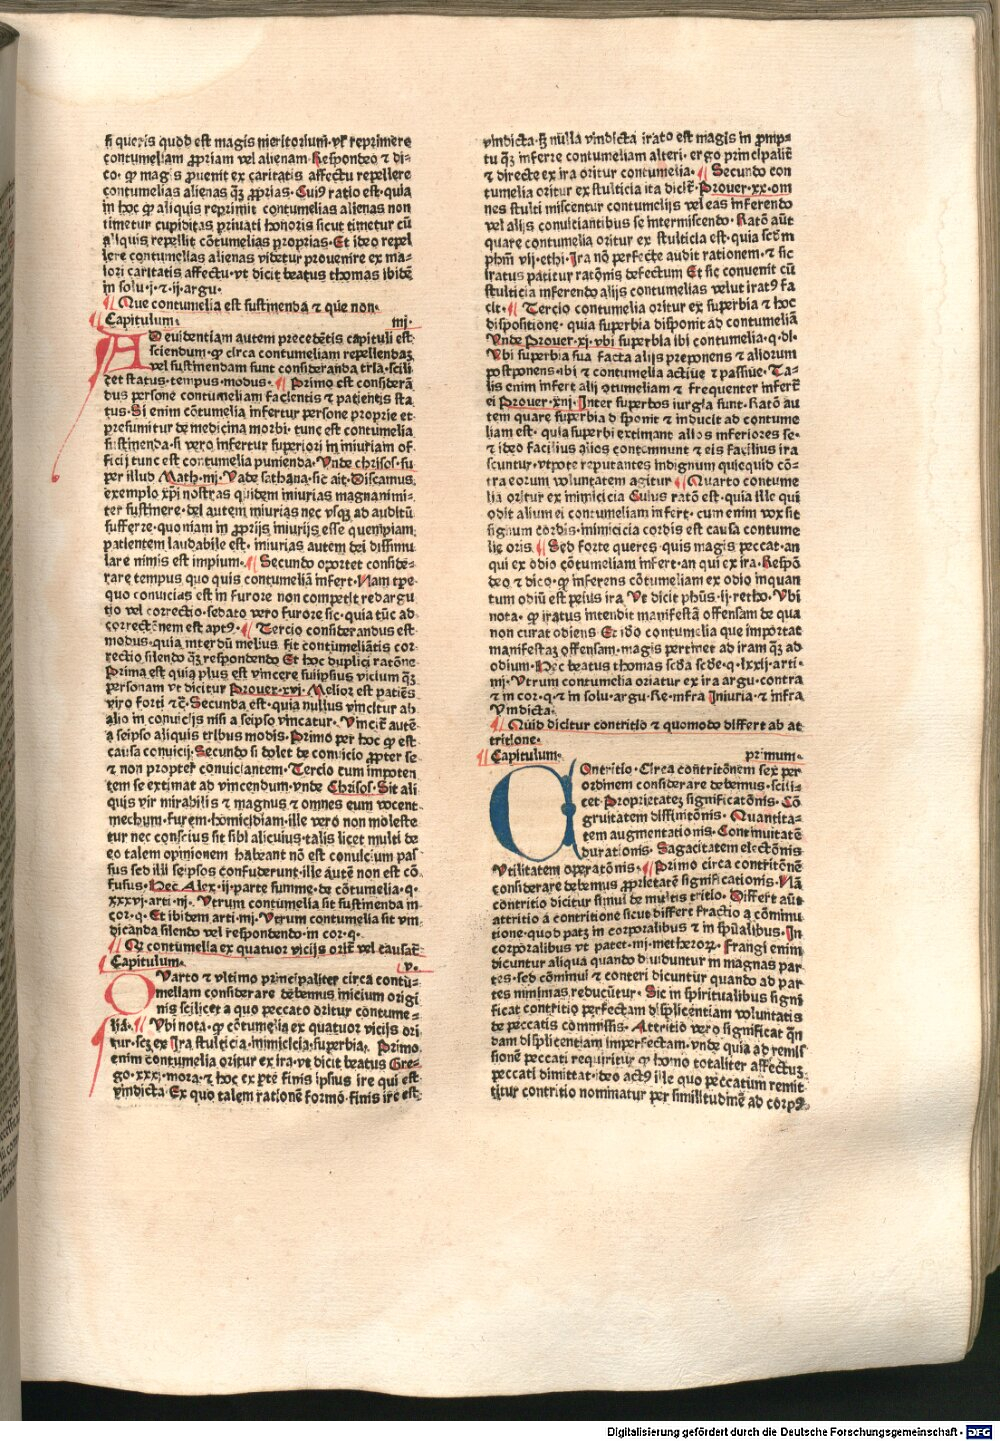 si queris quod est magis meritoriuʒ. vł reprimere
contumeliam ꝓpriam vel alienam. Respondeo ⁊ di-
co. ꝙ magis ꝓuenit ex caritatis affectu repellere
contumelias alienas qʒ̃ ꝓprias. Cuiꝰ ratio est. quia
in hoc ꝙ aliquis reprimit contumelias alienas non
timetur cupiditas priuati honoris sicut timetur cũ
aliquis repellit cõtumelias proprias. Et ideo repel
lere contumelias alienas videtur prouenire ex ma-
iori caritatis affectu. vt dicit beatus thomas ibidẽ
in solu. j. ⁊ ij. argu.
¶ Que contumelia est sustinenda ⁊ que non.
Capitulum. iiij.
AD euidentiam autem precedẽtis capituli est
sciendum. ꝙ circa contumeliam repellendaʒ
vel sustinendam sunt consideranda tria. scili
cet status. tempus. modus. ¶ Primo est considerã
dus persone contumeliam facientis ⁊ patientis sta
tus. Si enim cõtumelia infertur persone proprie et
presumitur de medicina morbi. tunc est contumelia
sustinenda. si vero infertur superiori in iniuriam of
ficij tunc est contumelia punienda. Vnde chrisos. su
per illud Math. iiij. Vade sathana. sic ait. Discamus
exemplo xp̃i nostras quidem iniurias magnanimi-
ter sustinere. dei autem iniurias nec vsqʒ ad auditũ
sufferre. quoniam in ꝓprijs iniurijs esse quempiam
patientem laudabile est. iniurias autem dei dissimu
lare nimis est impium. ¶ Secundo oportet conside-
rare tempus quo quis contumeliã infert. Nam tpe
quo conuicias est in furore non competit redargu
tio vel correctio. sedato vero furore sic. quia tũc ad
correctõnem est aptꝰ. ¶ Tercio considerandus est
modus. quia interdũ melius fit contumeliãtis cor
rectio silendo qʒ̃ respondendo Et hoc duplici ratõne
Prima est quia plus est vincere suiipsius vicium qʒ̃
personam vt dicitur Prouer. xvj. Melior est patiẽs
viro forti ⁊c̃. Secunda est. quia nullus vincitur ab
alio in conuicijs nisi a seipso vincatur. Vincit̃ autẽ
a seipso aliquis tribus modis. Primo per hoc ꝙ est
causa conuicij. Secundo si dolet de conuicio ꝓpter se
⁊ non propter conuiciantem. Tercio cum impoten
tem se extimat ad vincendum. vnde Chrisos. Sit ali
quis vir mirabilis ⁊ magnus ⁊ omnes eum vocent
mechum. furem. homicidiam. ille vero non moleste
tur nec conscius sit sibi alicuius. talis licet multi de
eo talem opinionem habeant nõ est conuicium pas
sus sed illi seipsos confuderunt. ille autẽ non est cõ
fusus. Hec Alex. ij. parte summe. de cõtumelia. q.
xxxvj. arti. iij. Vtrum contumelia sit sustinenda in
cor. q. Et ibidem arti. iiij. Vtrum contumelia sit vin
dicanda silendo vel respondendo. in cor. q.
¶ Qꝛ contumelia ex quatuor vicijs orit̃ vel causat̃
Capitulum. v.
QVarto ⁊ vltimo principaliter circa contu-
meliam considerare debemus inicium origi
nis scilicet a quo peccato oritur contume-
lia. ¶ Vbi nota. ꝙ cõtumelia ex quatuor vicijs ori
tur. scʒ ex Ira. stulticia. inimicicia. superbia. Primo
enim contumelia oritur ex ira. vt dicit beatus Gre-
go. xxxj. mora. ⁊ hoc ex ꝑte finis ipsius ire qui est
vindicta. Ex quo talem rationẽ formo. finis ire est
vindicta. sʒ nulla vindicta irato est magis in ꝓmp-
tu qʒ̃ inferre contumeliam alteri. ergo principalit̃
⁊ directe ex ira oritur contumelia. ¶ Secundo con
tumelia oritur ex stulticia ita dicit̃ Prouer. xx. om
nes stulti miscentur contumelijs vel eas inferendo
vel alijs conuiciantibus se intermiscendo. Ratõ aũt
quare contumelia oritur ex stulticia est. quia scd̃m
phm̃ vij. ethi. Ira nõ perfecte audit rationem. ⁊ sic
iratus patitur ratõnis defectum Et sic conuenit cũ
stulticia inferendo alijs contumelias velut iratꝰ fa
cit. ¶ Tercio contumelia oritur ex superbia ⁊ hoc
dispositione. quia superbia disponit ad contumeliã
Vnde Prouer. xj. vbi superbia ibi contumelia. q. di.
Vbi superbia sua facta alijs preponens ⁊ aliorum
postponens. ibi ⁊ contumelia actiue ⁊ passiue. Ta-
lis enim infert alij cõtumeliam ⁊ frequenter infert̃
ei Prouer. xiij. Inter superbos iurgia sunt. Ratõ au
tem quare superbia disponit ⁊ inducit ad contume
liam est. quia superbi extimant alios inferiores se.
⁊ ideo facilius alios contemnunt ⁊ eis facilius ira
scuntur. vtpote reputantes indignum quicquid cõ-
tra eorum voluntatem agitur ¶ Quarto contume
lia oritur ex inimicicia Cuius ratõ est. quia ille qui
odit alium ei contumeliam infert. cum enim vox sit
signum cordis. inimicicia cordis est causa contume
lie oris. ¶ Sed forte queres. quis magis peccat. an
qui ex odio cõtumeliam infert. an qui ex ira. Respõ
deo ⁊ dico. ꝙ inferens cõtumeliam ex odio inquan
tum odiũ est peius ira Vt dicit phũs. ij. retho. Vbi
nota. ꝙ iratus intendit manifestã offensam de qua
non curat odiens. Et iõo contumelia que importat
manifestaʒ offensam. magis pertinet ad iram qʒ̃ ad
odium. Hec beatus thomas scõa scõe. q. lxxij. arti.
iiij. Vtrum contumelia oriatur ex ira argu. contra
⁊ in cor. q. ⁊ in solu. argu. Re. infra Iniuria. ⁊ infra
Vindicta.
¶ Quid dicitur contritio ⁊ quomodo differt ab at
tritione.
¶ Capitulum. primum.
COntritio. Circa contritõnem sex per
ordinem considerare debemus. scili-
cet. Proprietateʒ significatõnis. Cõ
gruitatem diffinitõnis. Quantita-
tem augmentationis. Continuitatẽ
durationis. Sagacitatem electõnis
Vtilitatem operatõnis. ¶ Primo circa contritõnẽ
considerare debemus ꝓprietatẽ significationis. Nã
contritio dicitur simul de multis tritio. Differt aũt
attritio a contritione sicut differt fractio a cõminu
tione. quod patʒ in corporalibus ⁊ in sp̃ualibus. In
corporalibus vt patet. iiij. metheoroꝝ. Frangi enim
dicuntur aliqua quando diuiduntur in magnas par
tes. sed cõminui ⁊ conteri dicuntur quando ad par
tes minimas reducũtur. Sic in spiritualibus signi
ficat contritio perfectam displicentiam voluntatis
de peccatis cõmissis. Attritio vero significat qñ
dam displicentiam imperfectam. vnde quia ad remis
sionẽ peccati requiritur ꝙ homo totaliter affectuʒ
peccati dimittat. ideo actꝰ ille quo peccatum remit
titur contritio nominatur per similitudinẽ ad corpꝰ
Digitalisierung gefördert durch die Deutsche Forschungsgemeinschaft - DFG